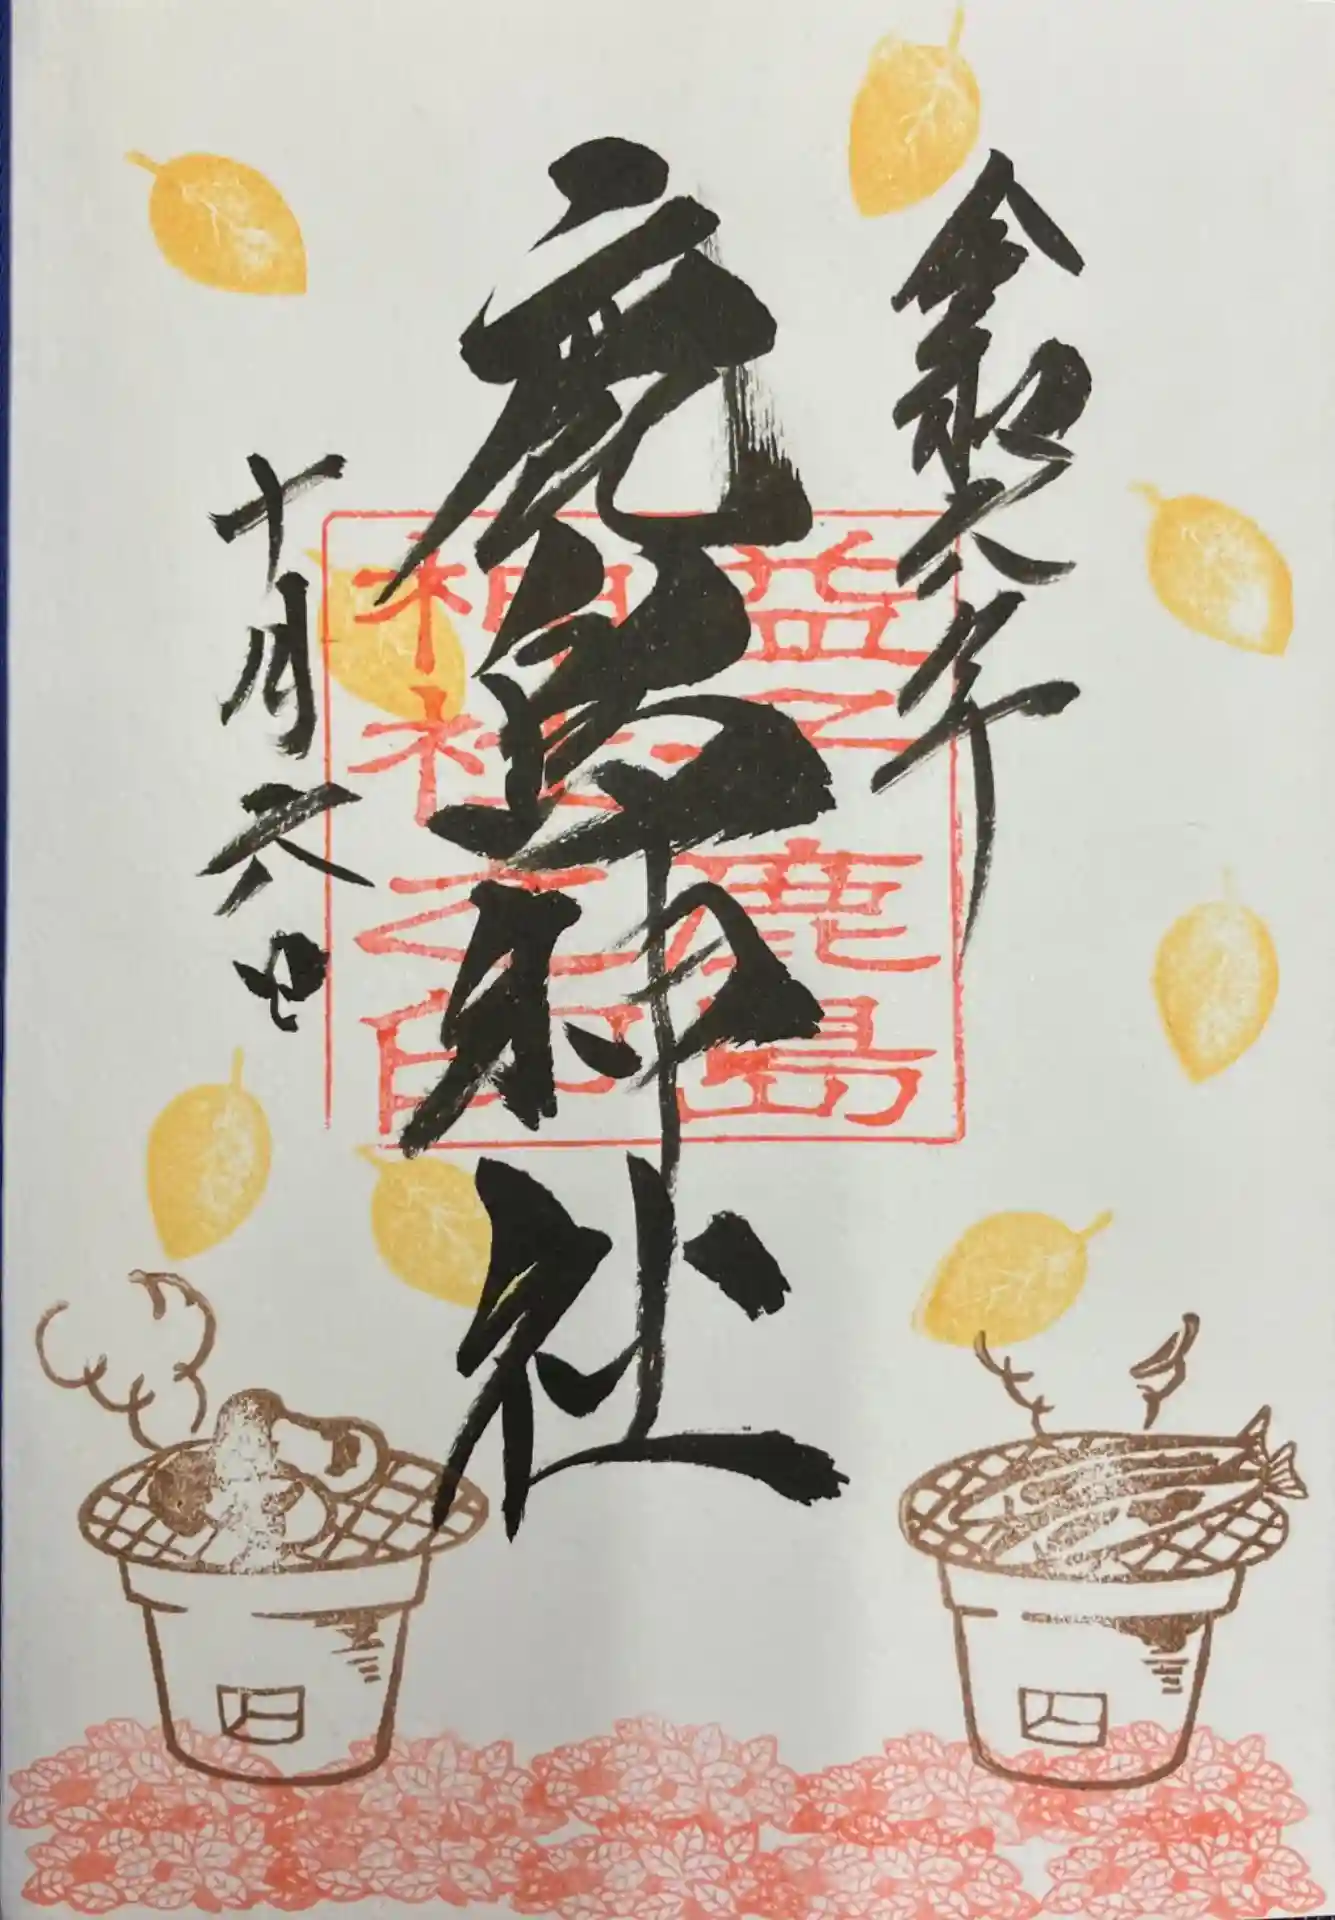 令和六年
鹿島神社
十月六日
益子鹿島
神社之印